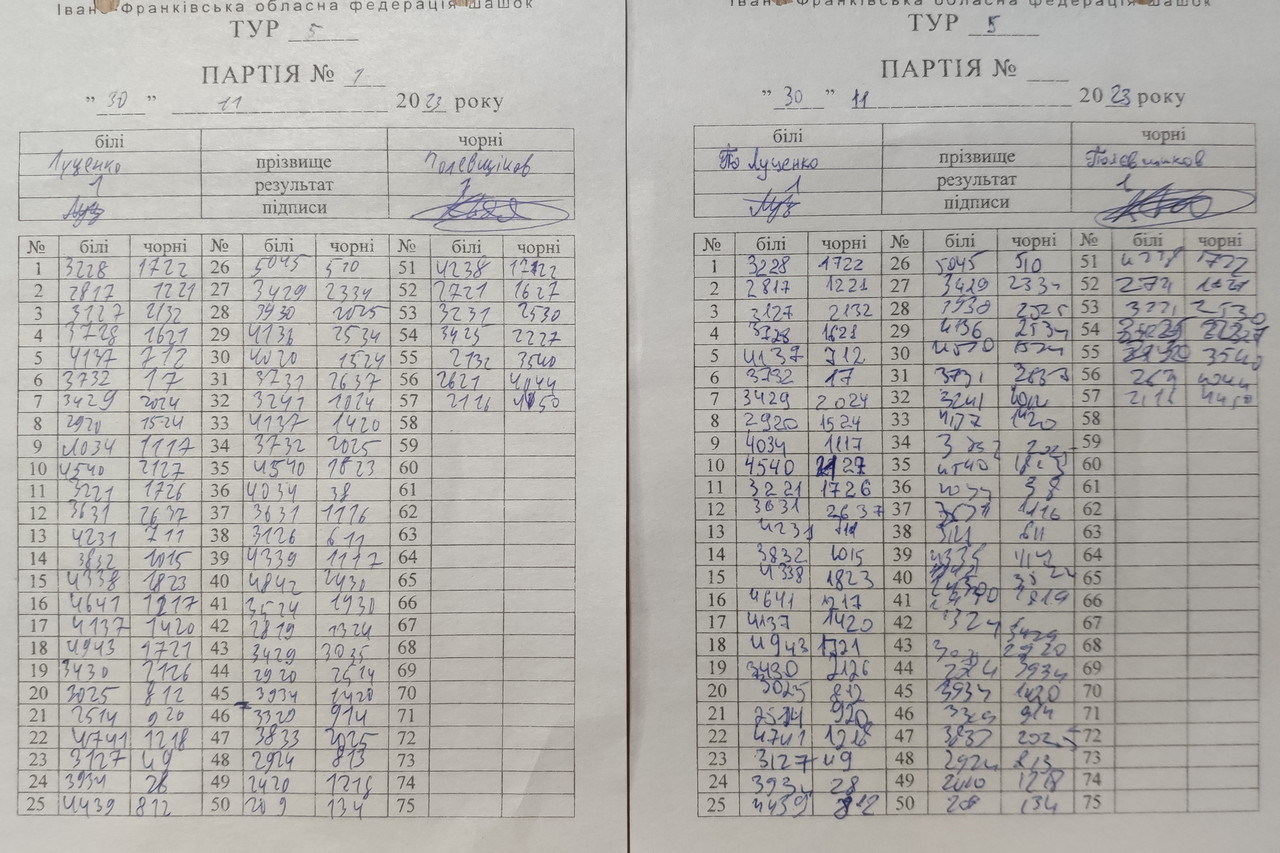 Івано-Франківська обласна федерація шашок
ТУР 5
ПАРТІЯ № 1
" 30 " 11 2023 року
білі чорні
Луценко прізвище Полєвщіков
1 результат 1
підписи
№ білі чорні № білі чорні № білі чорні
1 3228 1722 26 5045 510 51 4238 1722
2 2817 1221 27 3429 2334 52 2721 1627
3 3127 2132 28 3930 2025 53 3231 2530
4 3728 1621 29 4136 2534 54 3425 2227
5 4137 712 30 4020 1524 55 2132 3540
6 3732 17 31 3731 2637 56 2621 4044
7 3429 2024 32 3241 1024 57 2116 4450
8 2920 1524 33 4137 1420 58
9 4034 1117 34 3732 2025 59
10 4540 2127 35 4540 1823 60
11 3221 1726 36 4034 38 61
12 3631 2637 37 3631 1116 62
13 4231 711 38 3126 611 63
14 3832 1015 39 4339 1117 64
15 4338 1823 40 4842 2430 65
16 4641 1217 41 3524 1930 66
17 4137 1420 42 2819 1324 67
18 4943 1721 43 3429 3035 68
19 3430 2126 44 2920 2514 69
20 3025 812 45 3934 1420 70
21 2514 920 46 3320 914 71
22 4741 1218 47 3833 2025 72
23 3127 49 48 2924 813 73
24 3934 28 49 2420 1218 74
25 4439 812 50 209 134 75
Івано-Франківська обласна федерація шашок
ТУР 5
ПАРТІЯ №
" 30 " 11 2023 року
білі чорні
Луценко прізвище Полєвщиков
1 результат 1
підписи
№ білі чорні № білі чорні № білі чорні
1 3228 1722 26 5045 510 51 4238 1722
2 2817 1221 27 3429 2334 52
3 3127 2132 28 3930 2025 53 2530
4 3728 1621 29 4136 2534 54
5 4137 712 30 1524 55 3540
6 3732 17 31 3731 56 4044
7 3429 2024 32 3241 57 2116 4450
8 2920 1524 33 4137 1420 58
9 4034 1117 34 59
10 4540 2127 35 4540 60
11 3221 1726 36 4034 38 61
12 3631 2637 37 1116 62
13 4231 711 38 611 63
14 3832 1015 39 64
15 4338 1823 40 65
16 4641 1217 41 66
17 4137 1420 42 1324 67
18 4943 1721 43 2920 68
19 3430 2126 44 3934 69
20 3025 812 45 3934 1420 70
21 2514 920 46 914 71
22 4741 1218 47 3833 2025 72
23 3127 49 48 2924 813 73
24 3934 28 49 1218 74
25 4439 812 50 134 75